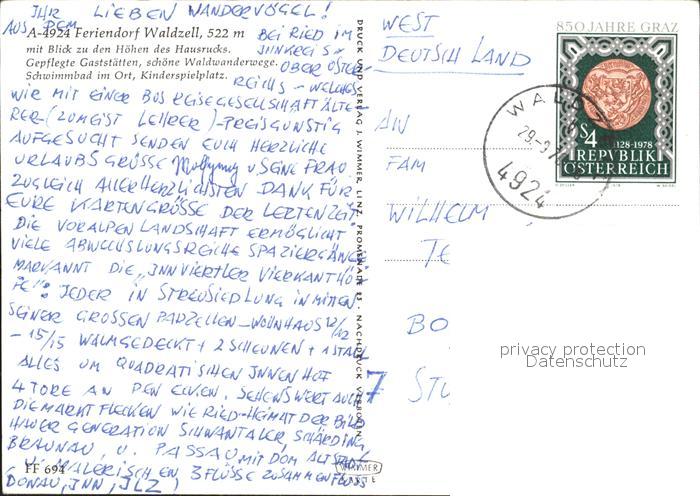 IHR LIEBEN WANDERVÖGEL!
AUS DEM
A-4924 Feriendorf Waldzell, 522 m
mit Blick zu den Höhen des Hausrucks.
Gepflegte Gaststätten, schöne Waldwanderwege.
Schwimmbad im Ort, Kinderspielplatz.
BEI RIED IM
INNKREIS
OBERÖSTER-
REICHS - WELCHES
WIR MIT EINER BUSREISEGESELLSCHAFT ÄLTE-
RER (ZUMEIST LEHRER) - PREISGÜNSTIG
AUFGESUCHT SENDEN EUCH HERZLICHE
URLAUBSGRÜSSE Wolfgang U SEINE FRAU.
ZUGLEICH ALLERHERZLICHSTEN DANK FÜR
EURE KARTENGRÜSSE DER LETZTEN ZEIT.
DIE VORALPEN LANDSCHAFT ERMÖGLICHT
VIELE ABWECHSLUNGSREICHE SPAZIERGÄNGE.
MARKANNT DIE „INNVIERTLER VIERKANTHÖ-
FE"! JEDER IN STREUSIEDLUNG INMITTEN
SEINER GROSSEN PARZELLEN - WOHNHAUS 12/12
- 15/15 WALMGEDECKT + 2 SCHEUNEN + 1 STALL
ALLES UM QUADRATISCHEN INNENHOF
4 TORE AN DEN ECKEN. SEHENSWERT AUCH
DIE MARKTFLECKEN WIE RIED - HEIMAT DER BILD
HAUER GENERATION SCHWANTALER, SCHÄRDING
BRAUNAU, U. PASSAU MIT DOM ALTSTADT
U. MALERISCHEN 3 FLÜSSE ZUSAMMENFLUSS
(DONAU, INN, ILZ)
FF 694
DRUCK UND VERLAG J. WIMMER, LINZ, PROMENADE 23 NACHDRUCK VERBOTEN
WIMMER
KARTE
WEST
DEUTSCHLAND
AN
FAM
WILHELM
TE
BO
7 STU
850 JAHRE GRAZ
S 4
1128-1978
REPUBLIK
ÖSTERREICH
WALDZELL
4924
privacy protection
Datenschutz